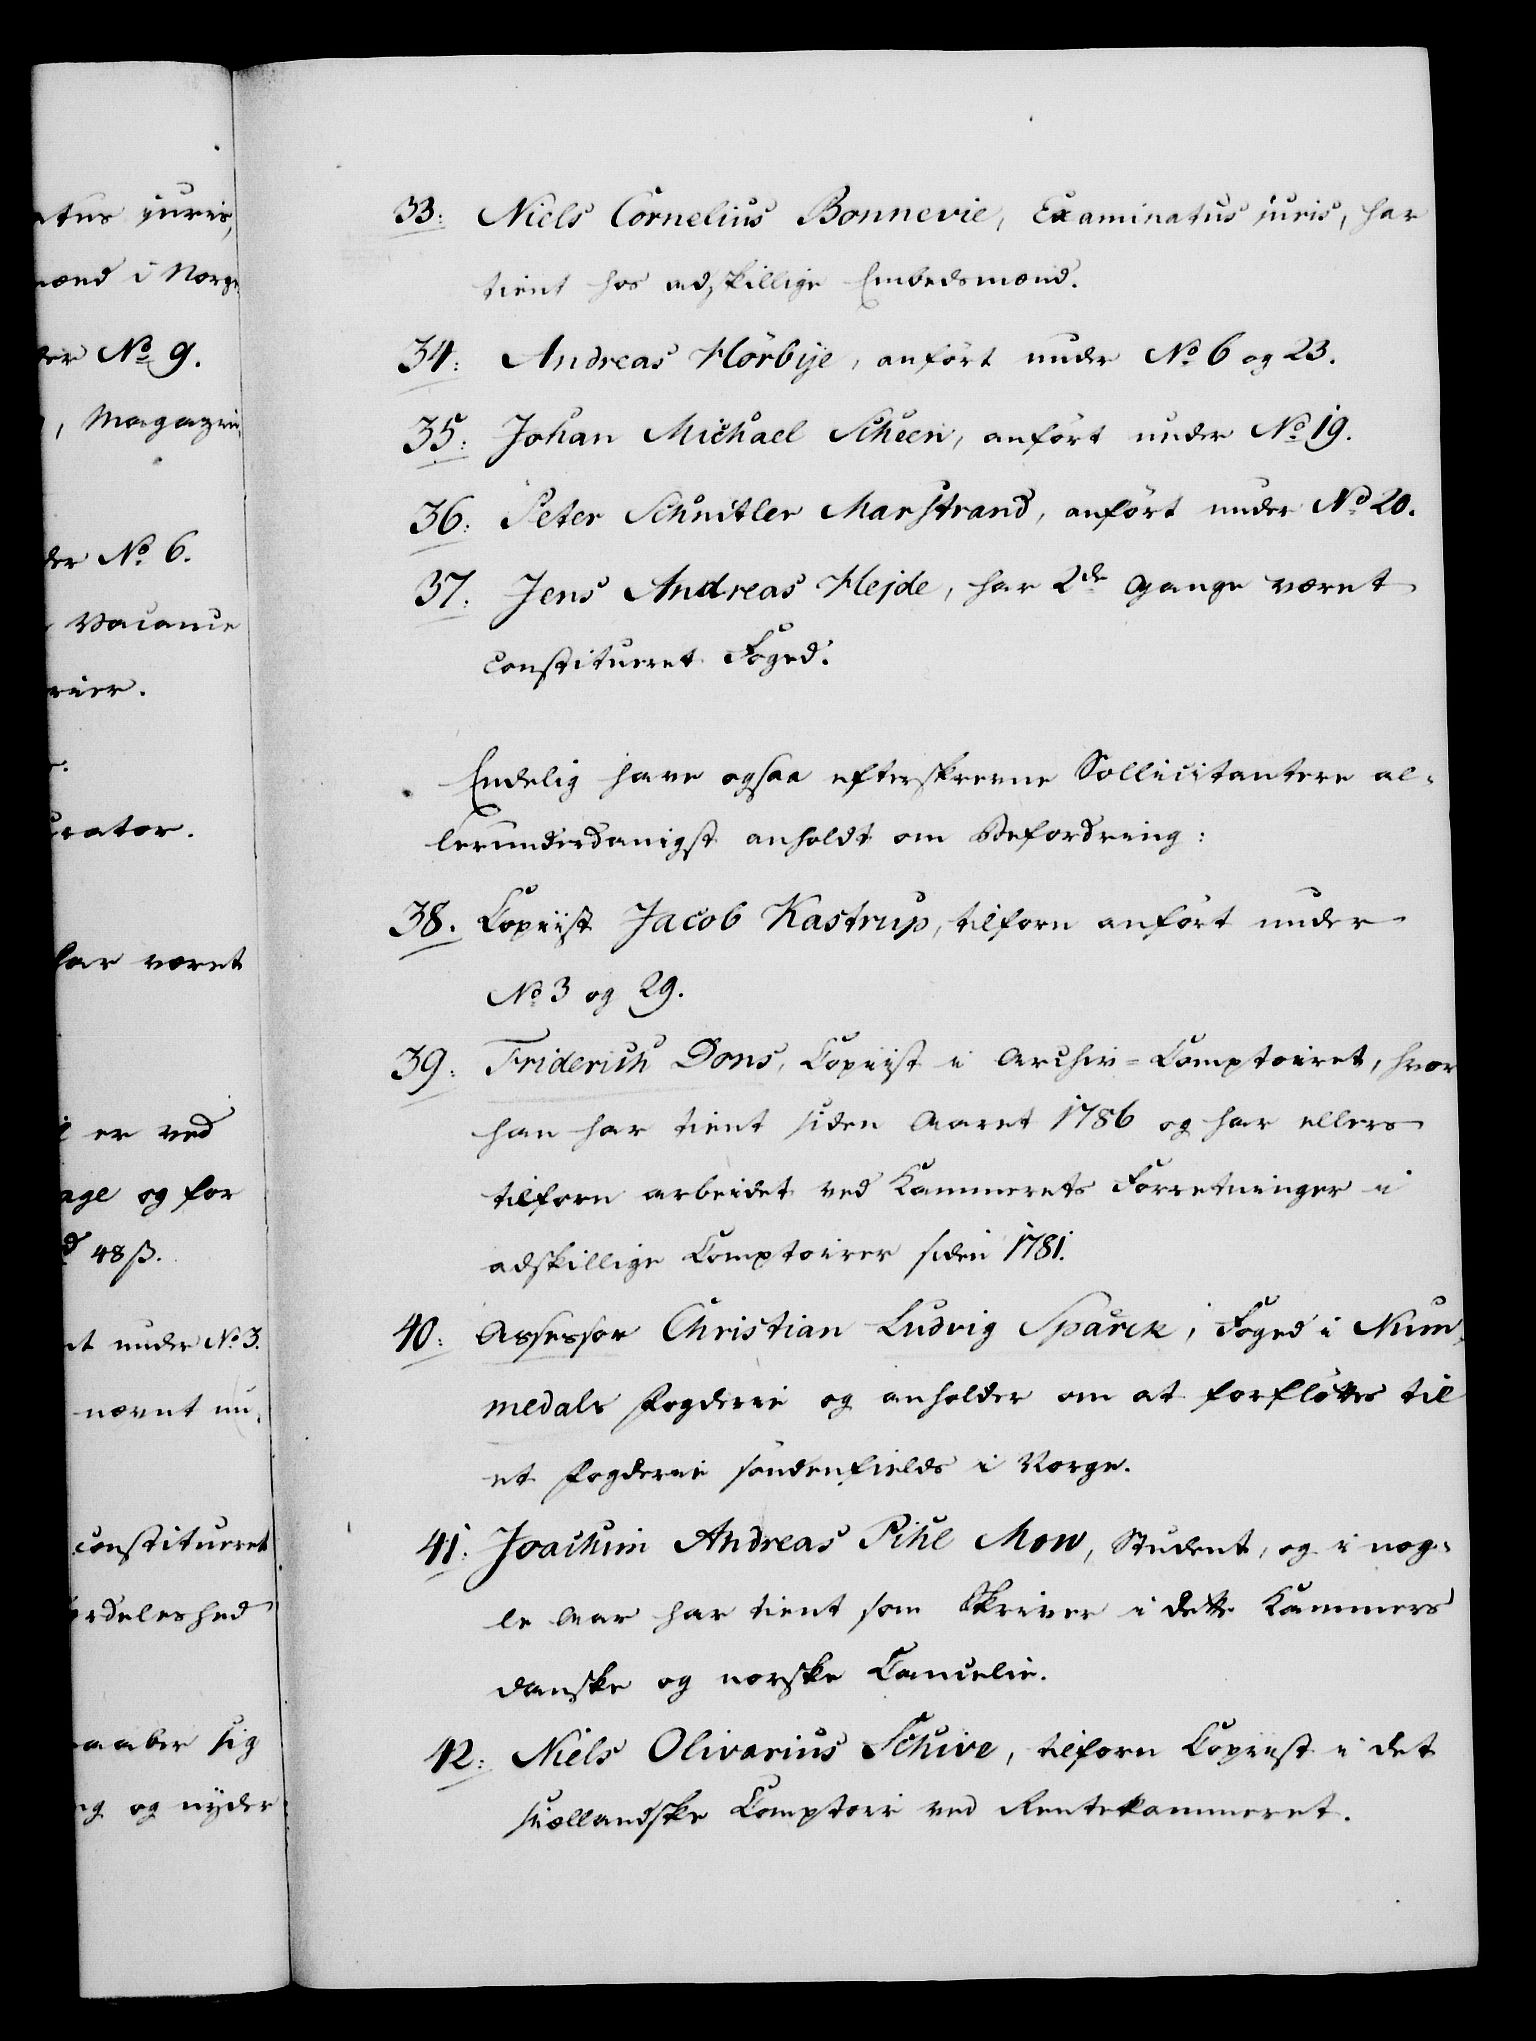 atus juris,
mænd i Norge
der No 9.
, Magazin
der No 6.
Vacance
rier.
urator.
har været
er ved
age og for
48 ß.
under No 3.
nævnt un-
constitueret
ærdeleshed
raaber sig
ng og nyder
33: Niels Cornelius Bonnevie, Examinatus juris, har
tient hos adskillige Embedsmænd.
34: Andreas Hörbÿe, anført under No 6 og 23.
35: Johan Michael Scheen, anført under No 19.
36: Peter Schnitler Marstrand, anført under No 20.
37. Jens Andreas Hejde, har 2de Gange været
constitueret Foged.
Endelig have ogsaa efterskrevne Sollicitantere al-
lerunderdanigst anholdt om Befordring:
38. Copiist Jacob Kastrup, tilforn anført under
No 3 og 29.
39: Friderich Dons, Copiist i Archiv-Comptoiret, hvor
han har tient siden Aaret 1786 og har ellers
tilforn arbeidet ved Kammerets Forretninger i
adskillige Comptoirer siden 1781.
40: Assessor Christian Ludvig Sparck, Foged i Num-
medals Fogderie og anholder om at forfløttes til
et Fogderie söndenfields i Norge.
41: Joachim Andreas Pihl Mow, Student, og i nog-
le Aar har tient som Skriver i dette Kammers
danske og norske Cancelie.
42: Niels Olivarius Schive, tilforn Copiist i det
siællandske Comptoir ved Rentekammeret.